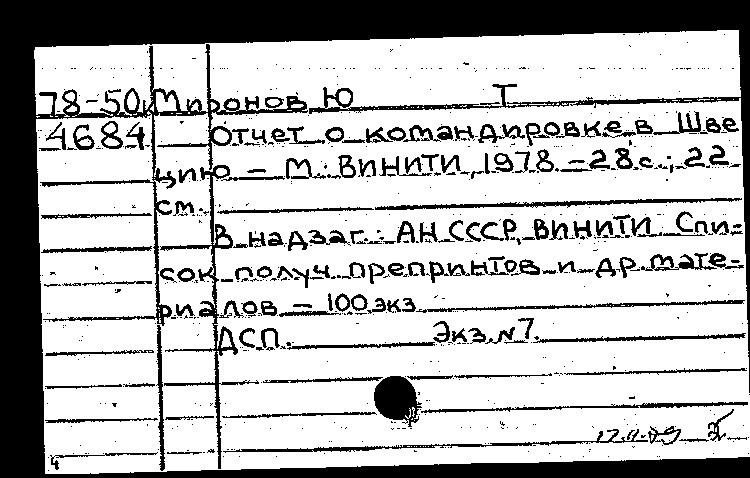 78-50к Миронов, Ю Т
4684 Отчет о командировке в Шве
цию - М.: ВИНИТИ, 1978. - 28 с.; 22
см.
В надзаг.: АН СССР, ВИНИТИ. Спи-
сок получ. препринтов и др. мате-
риалов - 100 экз
ДСП. Экз. N 7.
4